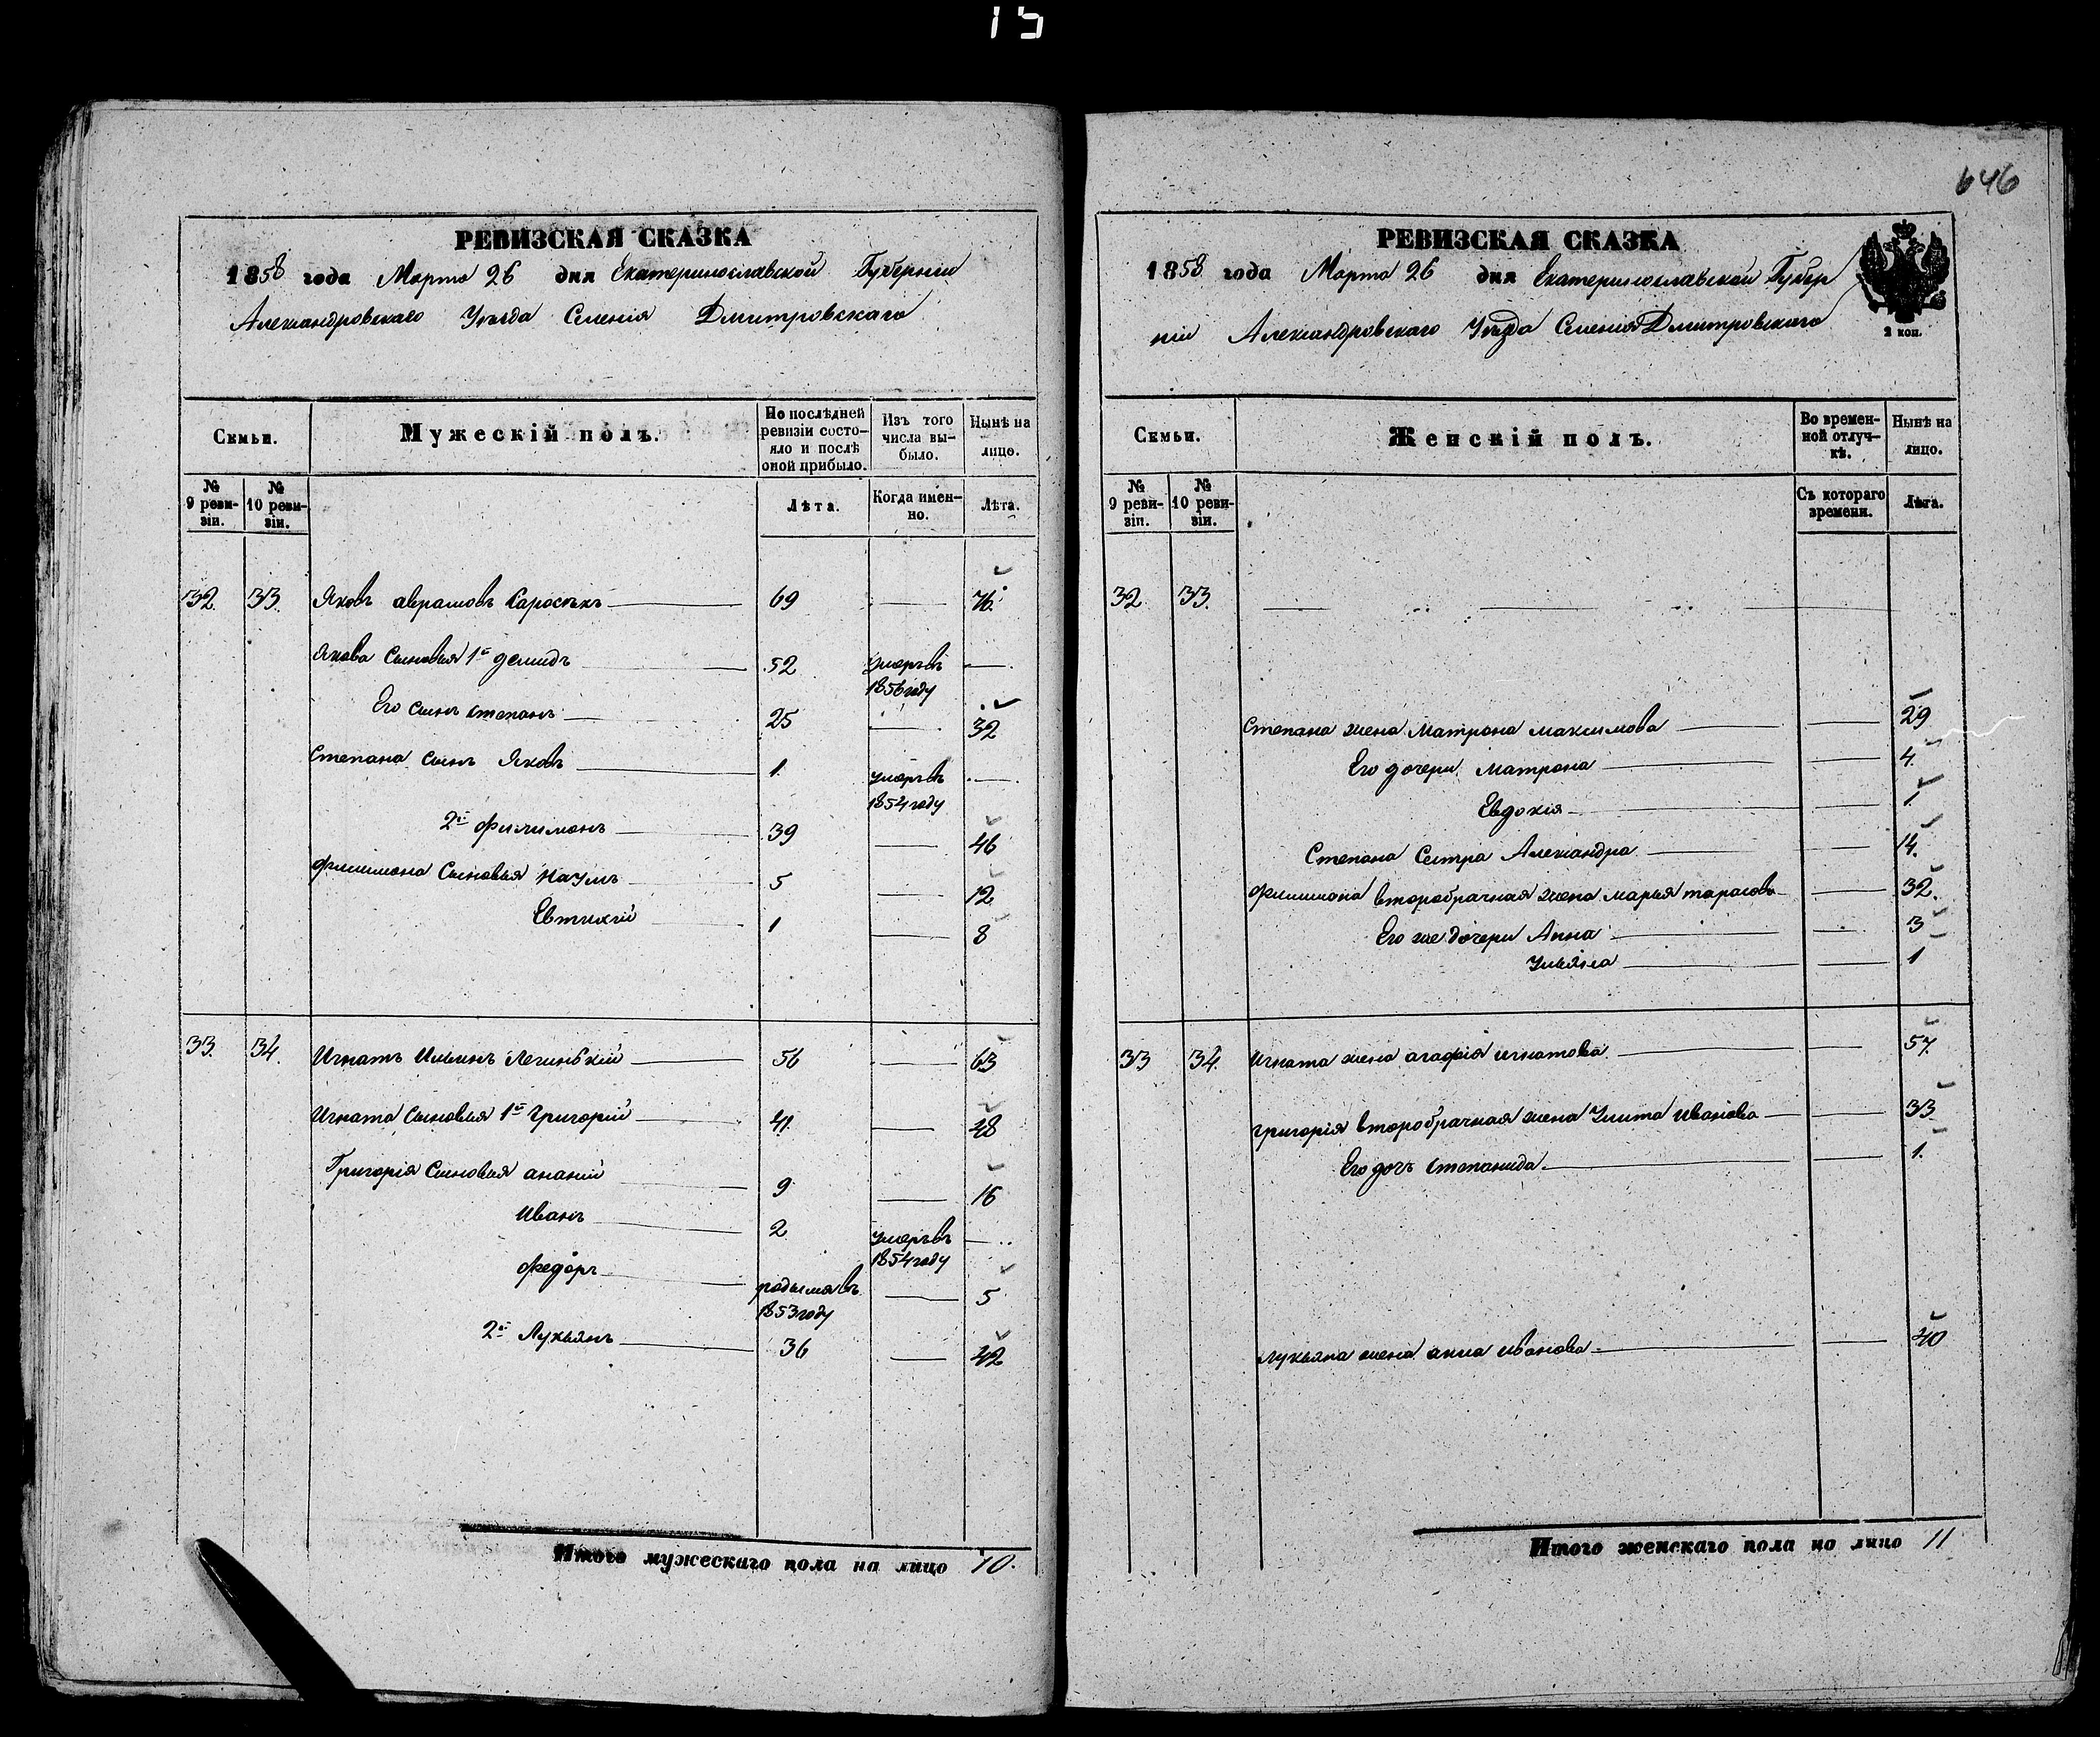 15
РЕВИЗСКАЯ СКАЗКА
1858 года Марта 26 дня Екатеринославской Губерніи
Александровскаго Уѣзда Селенія Дмитровскаго
Семьи.
Мужескій полъ.
По послѣдней ревизіи состояло и послѣ оной прибыло.
Изъ того числа выбыло.
Нынѣ на лицо.
№ 9 ревизіи.
№ 10 ревизіи.
Лѣта.
Когда именно.
Лѣта.
32. 33. Яковъ аврамовъ 69 76.
Якова Сыновья 1й демидъ 52 умеръ въ 1856 году
Его сынъ степанъ 25 32
Степана сынъ Яковъ 1. умеръ въ 1854 году
2й Филимонъ 39 46
Филимона Сыновья Наумъ 5 12
Евтихій 1 8
33. 34. Игнатъ 56 63
Игната Сыновья 1й Григорій 41. 48
Григорія Сыновья ананій 9 16
Иванъ 2 умеръ въ 1854 году
Федоръ родился въ 1853 году 5
2й Лукьянъ 36 42
Итого мужескаго пола на лицо 10.
646
РЕВИЗСКАЯ СКАЗКА
1858 года Марта 26 дня Екатеринославской Губер
ніи Александровскаго Уѣзда Селенія Дмитровскаго
2 коп.
Семьи.
Женскій полъ.
Во временной отлучкѣ.
Нынѣ на лицо.
№ 9 ревизіи.
№ 10 ревизіи.
Съ котораго времени.
Лѣта.
32 33.
Степана жена Матрона максимова 29
Его дочери Матрона 4.
Евдокія 1
Степана Сестра Александра 14.
Филимона второбрачная жена марья тарасова 32.
Его же дочери Анна 3
Ульяна 1
33 34. Игната жена агафія игнатова 57.
григорія второбрачная жена Улита Иванова 33
Его дочь степанида 1.
лукьяна жена анна иванова 40
Итого женскаго пола на лицо 11